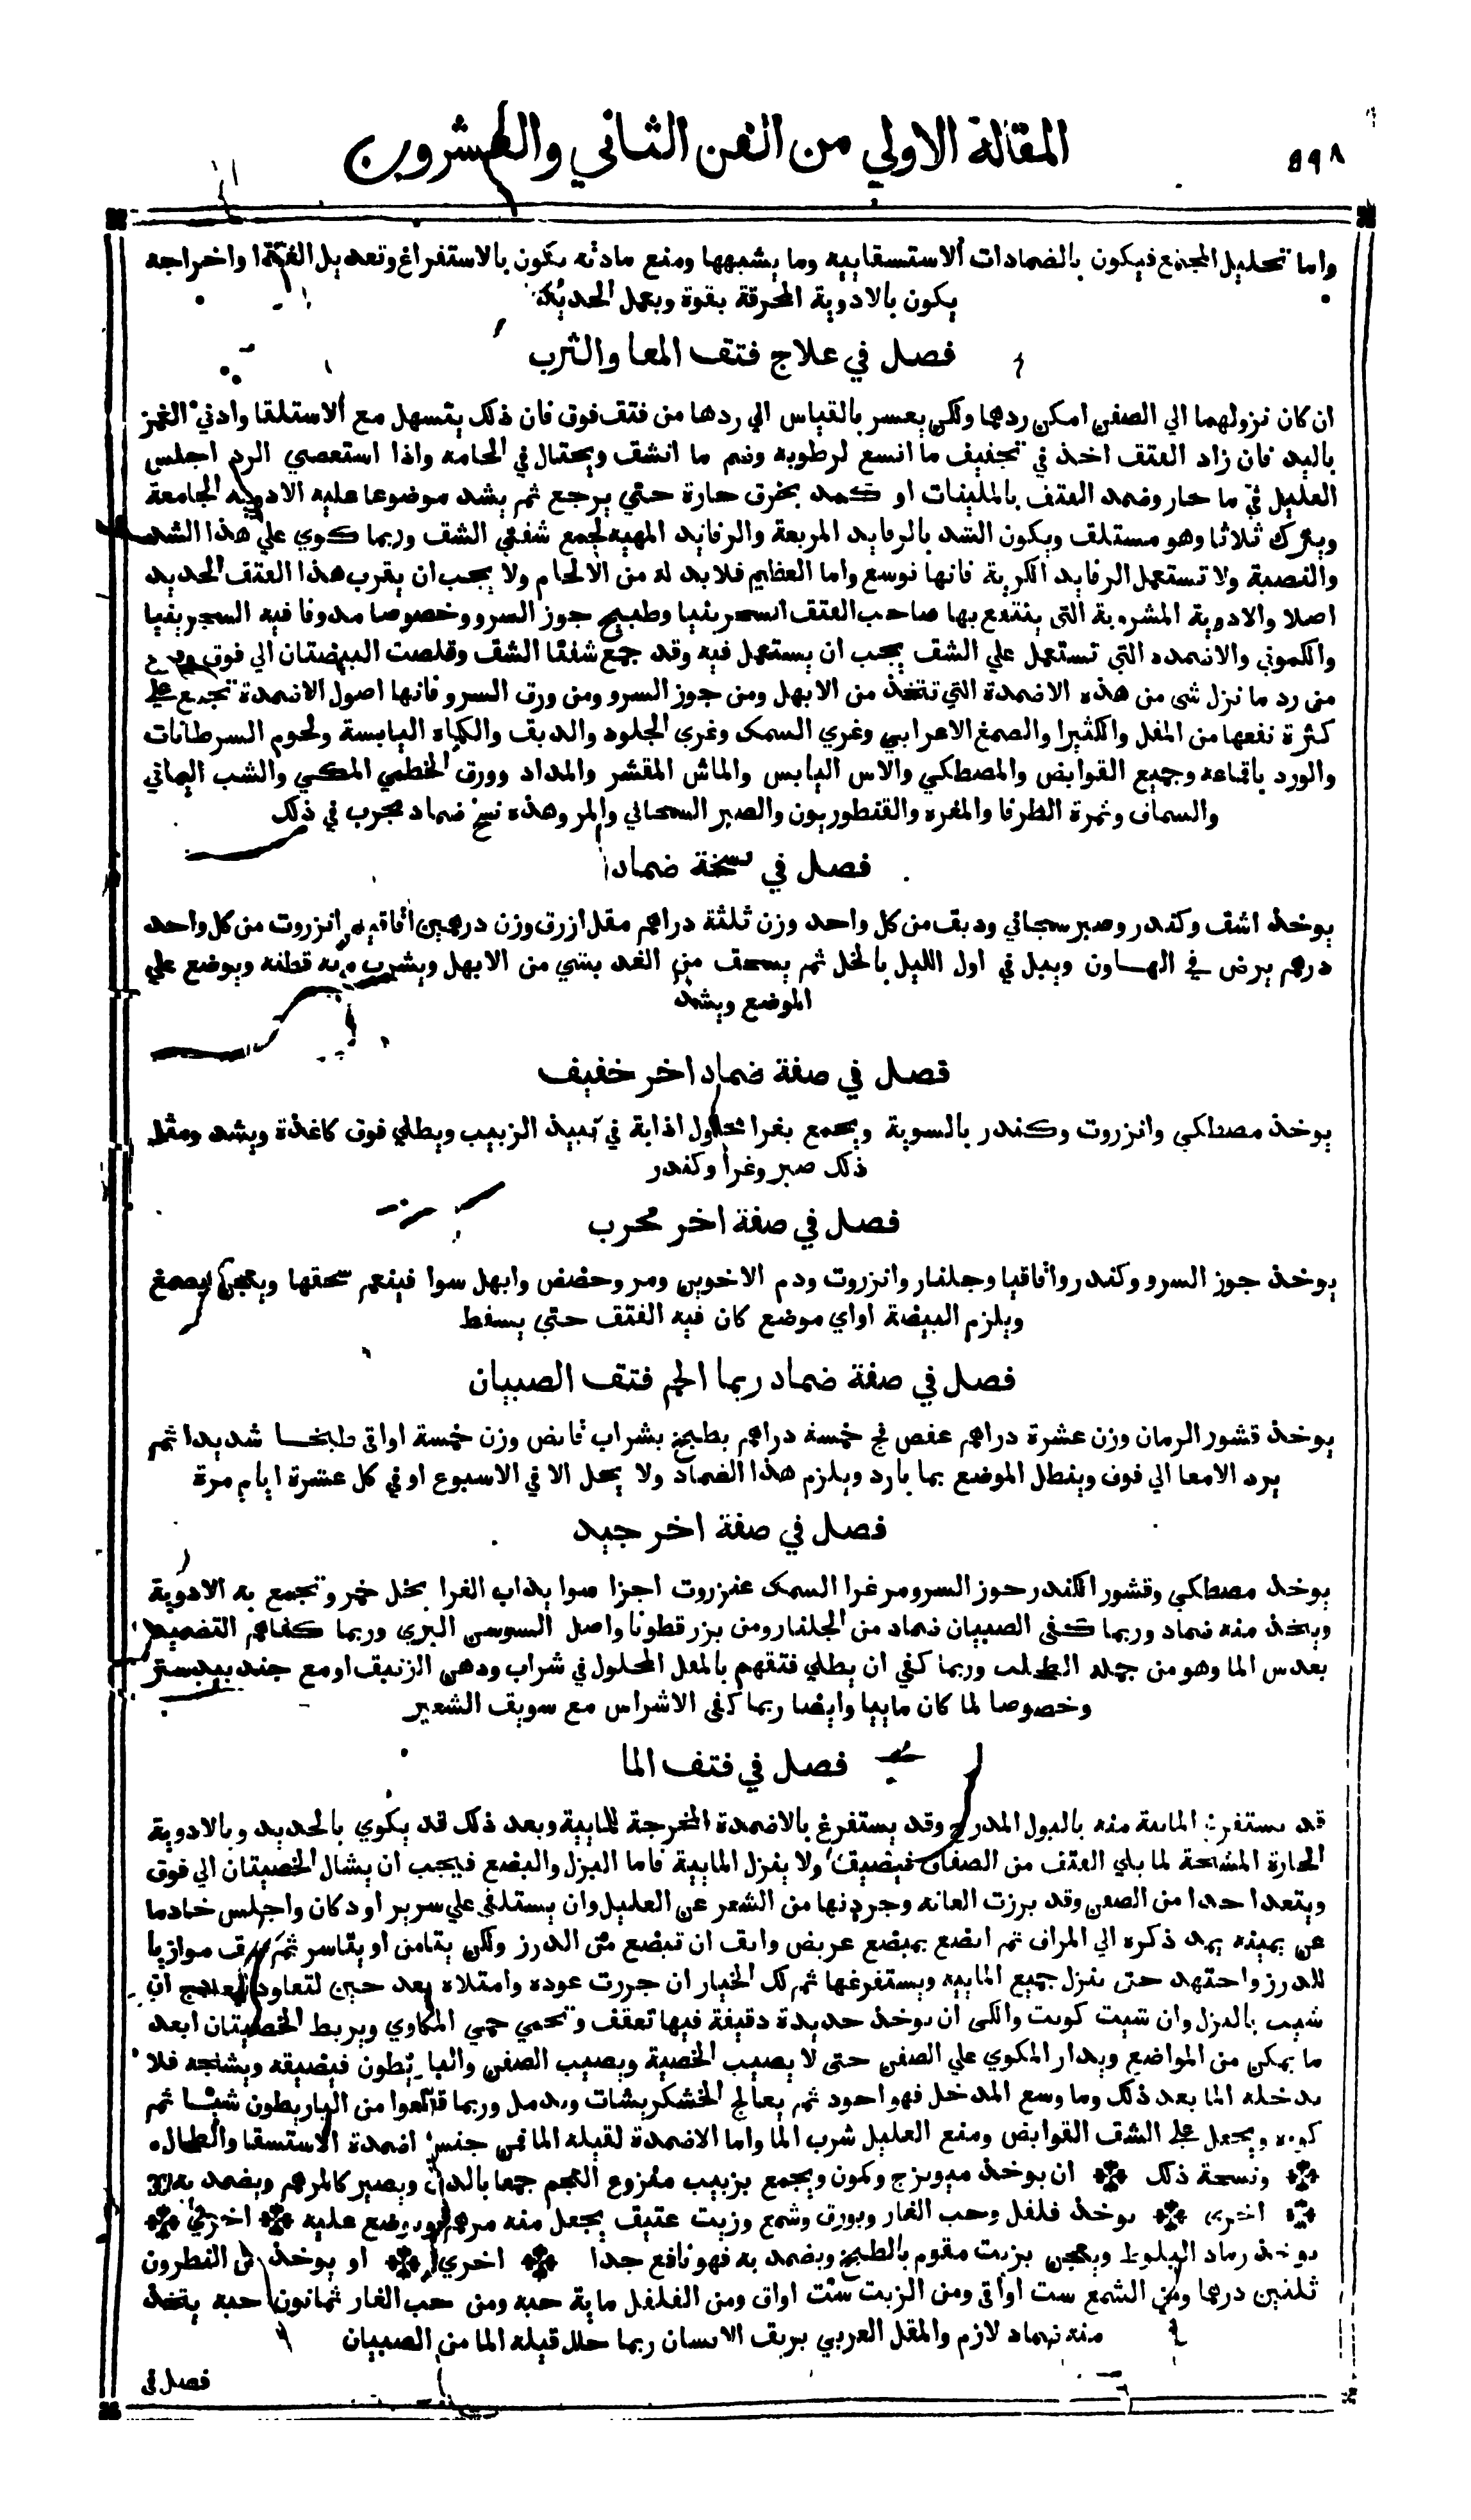 ٥٩٨
المقالة الاولي من الفن الثاني والعشرون
واما تحليل المجتمع فيكون بالضمادات الاستسقاييه وما يشبهها ومنع مادته يكون بالاستفراغ وتعديل الغذا واخراجه
يكون بالادوية المحرقة بقوة وبعمل الحديد
فصل في علاج فتق المعا والثرب
ان كان نزولهما الي الصفن امكن ردهما ولكن يعسر بالقياس الي ردها من فتق فوق فان ذلك يتسهل مع الاستلقا وادني الغمز
باليد فان زاد الفتق اخذ في تجفيف ما اتسع لرطوبه وضم ما انشق ويحتال في الحامه واذا استعصي الرد اجلس
العليل في ما حار وضمد الفتق بالملينات او كمد بخرق حارة حتي يرجع ثم يشد موضوعا عليه الادويه الجامعة
ويترك ثلاثا وهو مستلق ويكون الشد بالرفايد المربعة والرفايد المهيه لجمع شفتي الشق وربما كوي علي هذا الشد
والنصبة ولا تستعمل الرفايد الكرية فانها توسع واما العظيم فلا بد له من الالحام ولا يجب ان يقرب هذا الفتق الحديد
اصلا والادوية المشروبة التي ينتفع بها صاحب الفتق السجرينيا وطبيخ جوز السرو وخصوصا مدوفا فيه السجرينيا
والكموني والاضمدة التي تستعمل علي الشق يجب ان يستعمل فيه وقد جمع شفتا الشق وقلصت البيضتان الي فوق
من رد ما نزل شي من هذه الاضمدة التي تتخذ من الابهل ومن جوز السرو ومن ورق السرو فانها اصول الاضمدة تجمع علي
كثرة نفعها من المقل والكثيرا والصمغ الاعرابي وغري السمك وغري الجلود والدبق والكماه اليابسة ولحوم السرطانات
والورد باقماعه وجميع القوابض والمصطكي والاس اليابس والماش المقشر والمداد وورق الخطمي المكي والشب اليماني
والسماق وثمرة الطرفا والمغره والقنطوريون والصبر السمجاني والمر وهذه نسخ ضماد مجرب في ذلك
فصل في نسخة ضماد
يوخذ اشق وكندر وصبر سمجاني ودبق من كل واحد وزن ثلثة دراهم مقل ازرق وزن درهمين اقاقيا انزروت من كل واحد
درهم يرض في الهاون ويبل في اول الليل بالخل ثم يسحق من الغد بشي من الابهل ويشرب منه قطنه ويوضع علي
الموضع ويشد
فصل في صفة ضماد اخر خفيف
يوخذ مصطكي وانزروت وكندر بالسوية ويجمع بغرا محلول اذابة في نبيذ الزبيب ويطلي فوق كاغذة ويشد ومثل
ذلك صبر وغرا وكندر
فصل في صفة اخر مجرب
يوخذ جوز السرو وكندر واقاقيا وجلنار وانزروت ودم الاخوين ومر وحضض وابهل سوا فينعم سحقها ويعجن بصمغ
ويلزم البيضة او اي موضع كان فيه الفتق حتي يسقط
فصل في صفة ضماد ربما الحم فتق الصبيان
يوخذ قشور الرمان وزن عشرة دراهم عفص فج خمسة دراهم يطبخ بشراب قابض وزن خمسة اواق طبخا شديدا ثم
يرد الامعا الي فوق وينطل الموضع بما بارد ويلزم هذا الضماد ولا يحل الا في الاسبوع او في كل عشرة ايام مرة
فصل في صفة اخر جيد
يوخذ مصطكي وقشور الكندر جوز السرو مر غرا السمك عنزروت اجزا سوا يذاب الغرا بخل خمر وتجمع به الادوية
ويتخذ منه ضماد وربما كفى الصبيان ضماد من الجلنار ومن بزر قطونا واصل السوسن البري وربما كفاهم التضميد
بعدس الما وهو من جمله الطحلب وربما كفي ان يطلي فتقهم بالمقل المحلول في شراب ودهن الزنبق او مع جندبيدستر
وخصوصا لما كان ماييا وايضا ربما كفى الاشراس مع سويق الشعير
فصل في فتق الما
قد يستفرغ المايية منه بالبول المدرج وقد يستفرغ بالاضمدة المخرجة للمايية وبعد ذلك قد يكوي بالحديد وبالادوية
الحارة المشنجة لما يلي الفتق من الصفاق فيضيق ولا ينزل المايية فاما البزل والبضع فيجب ان يشال الخصيتان الي فوق
ويتعدا حدا من الصفن وقد برزت العانه وجردنها من الشعر عن العليل وان يستلقي علي سرير او دكان واجلس خادما
عن يمينه يمد ذكره الي المراق ثم ابضع بمبضع عريض واتق ان تبضع متن الدرز ولكن يتامن او يتاسر ثم موازيا
للدرز واجتهد حتى ينزل جميع المايية ويستفرغها ثم لك الخيار ان جررت عوده وامتلاه بعد حين لتعاود العلاج ان
شيت بالبزل وان شيت كويت والكى ان يوخذ حديدة دقيقة فيها تعقف وتحمي حمي المكاوي ويربط الخصيتان ابعد
ما يمكن من المواضع ويدار المكوي علي الصفن حتى لا يصيب الخصية ويصيب الصفن والباريطون فيضيقه ويشنجه فلا
يدخله الما بعد ذلك وما وسع المدخل فهو اجود ثم يعالج الخشكريشات ويدمل وربما قطعوا من الباريطون شيا ثم
كووه ويجعل علي الشق القوابض ومنع العليل شرب الما واما الاضمدة لقيلة الما فمن جنس اضمدة الاستسقا والطحال
ونسخة ذلك ان يوخذ ميويزج وكمون ويجمع بزبيب منزوع العجم جمعا بالدق ويصير كالمرهم ويضمد به
اخرى يوخذ فلفل وحب الغار وبورق وشمع وزيت عتيق يجعل منه مرهم ويوضع عليه اخري
يوخذ رماد البلوط ويعجن بزيت مقوم بالطبخ ويضمد به فهو نافع جدا اخري او يوخذ من النطرون
ثلثين درهما ومن الشمع ست اواق ومن الزيت ست اواق ومن الفلفل ماية حبه ومن حب الغار ثمانون حبه يتخذ
منه ضماد لازم والمقل العربي بريق الانسان ربما حلل قيله الما من الصبيان
فصل في